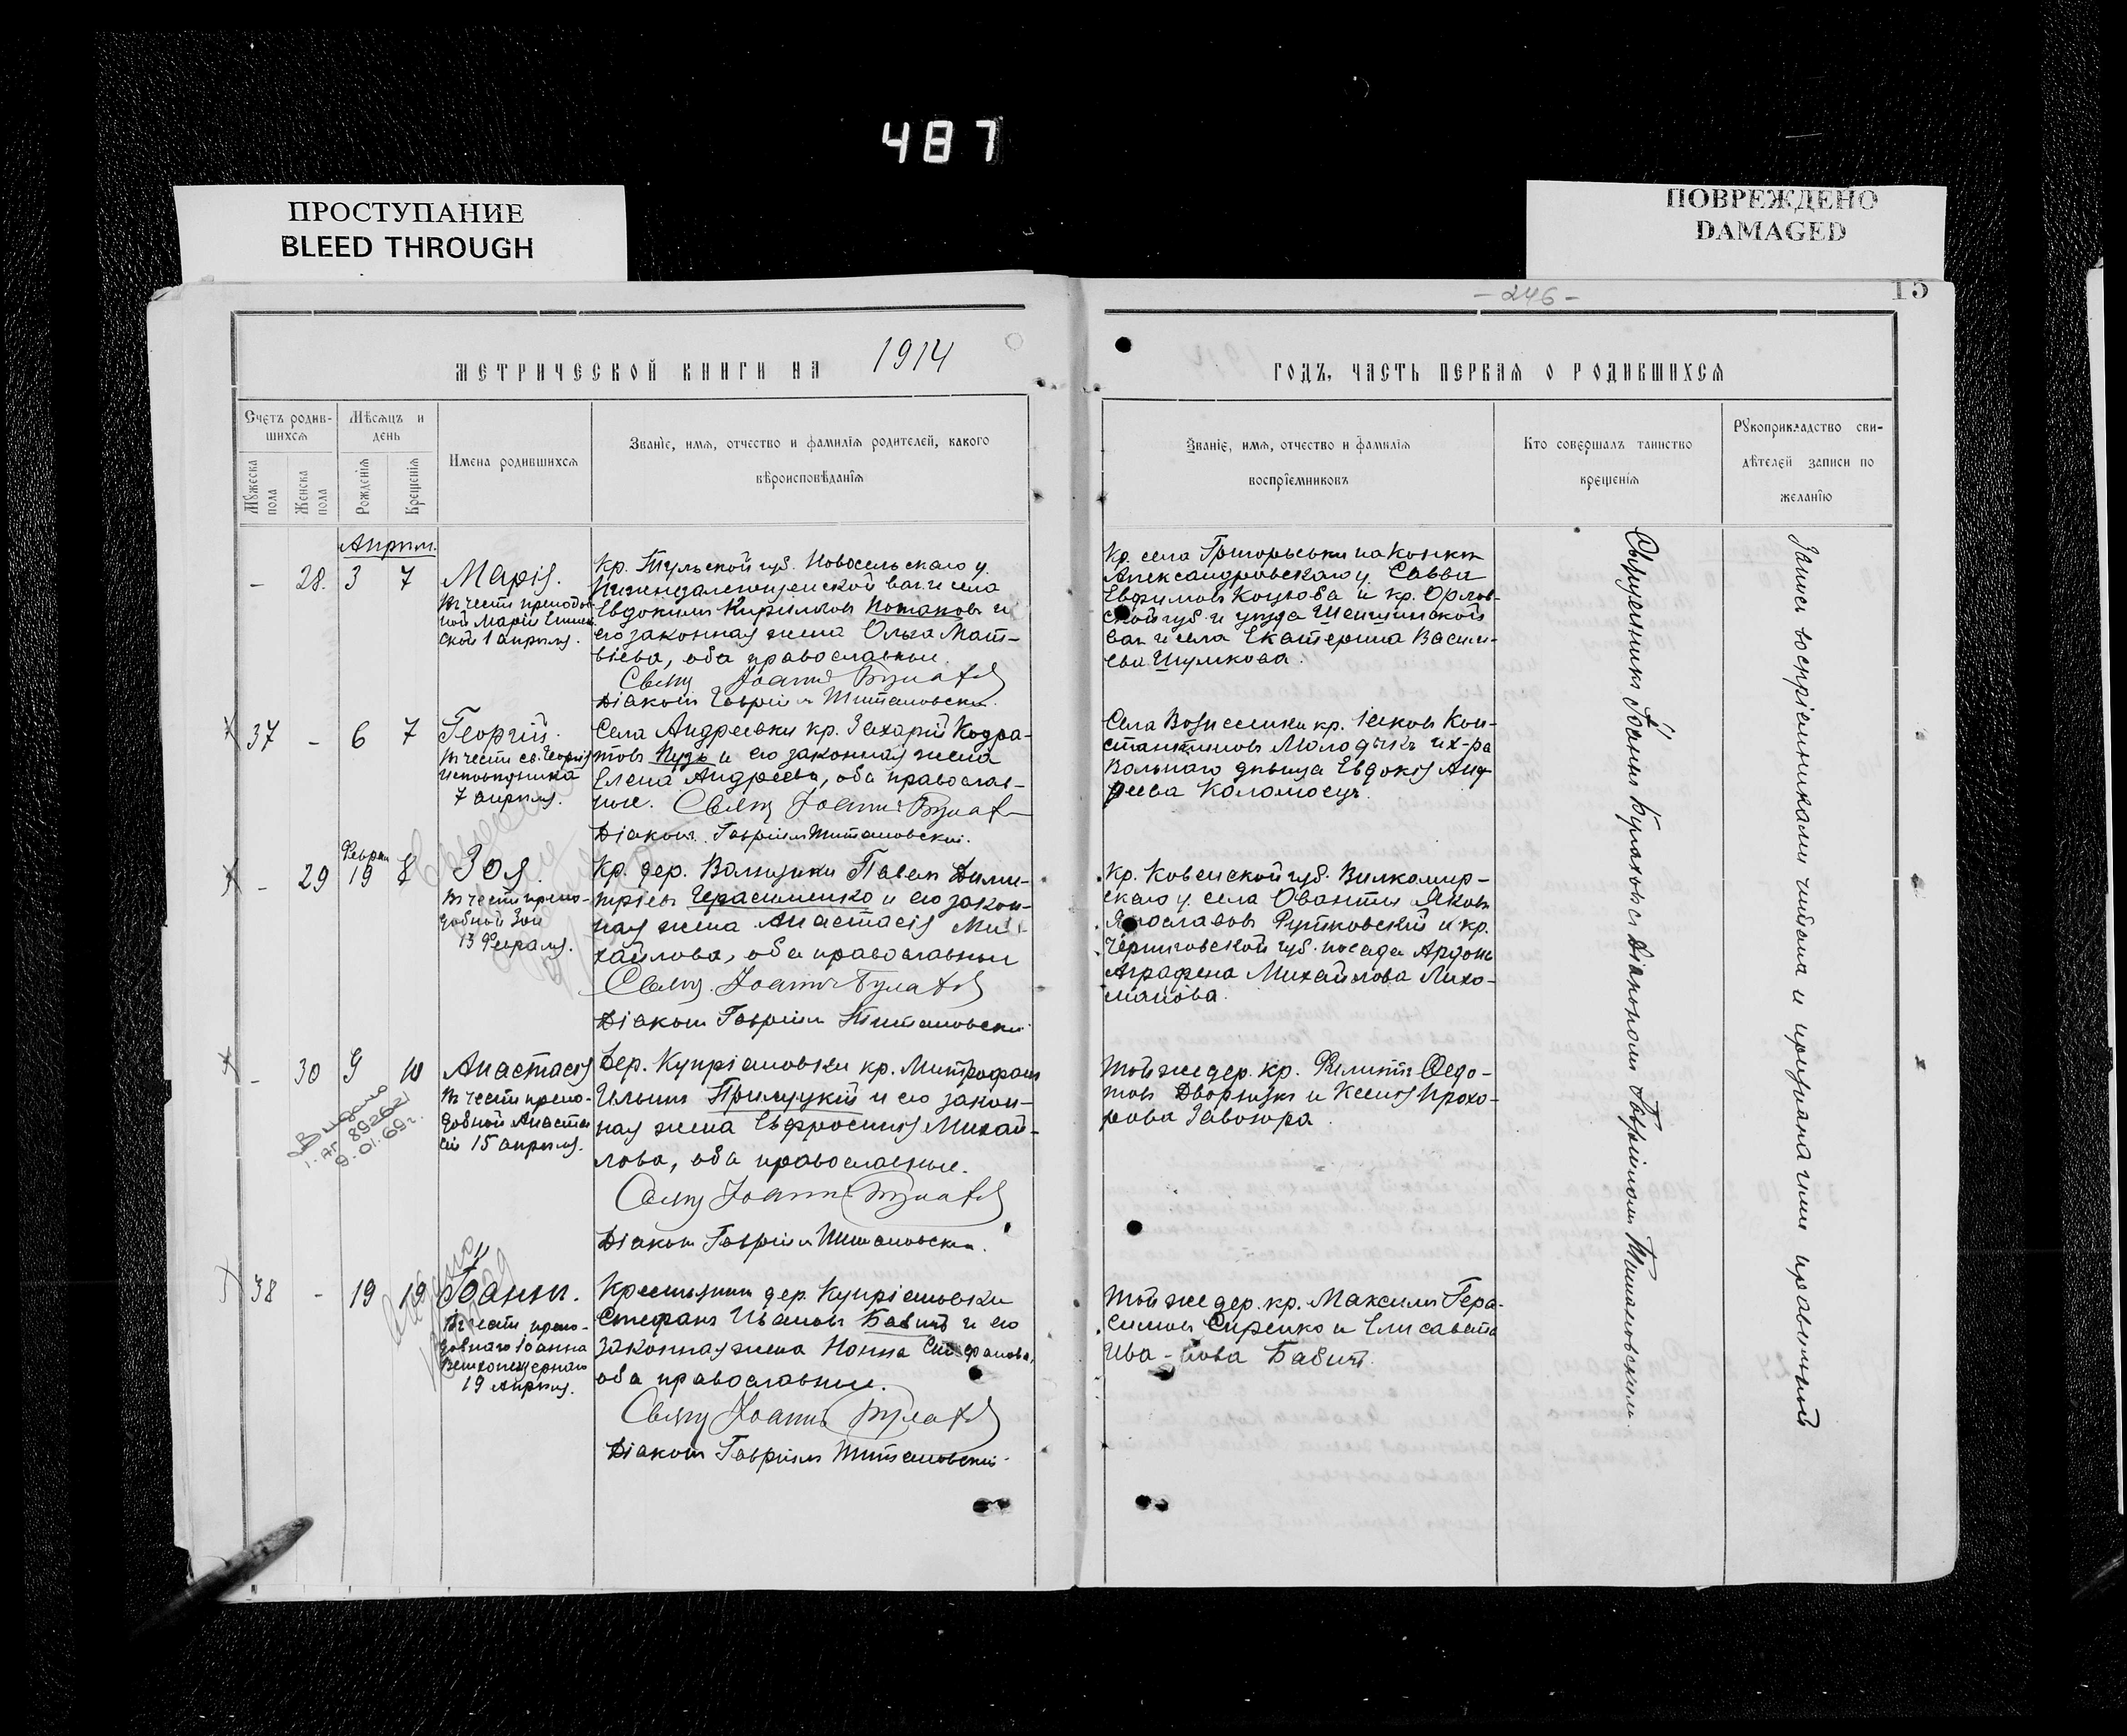 487
ПРОСТУПАНИЕ
BLEED THROUGH
ПОВРЕЖДЕНО
DAMAGED
- 246 -
15
МЕТРИЧЕСКОЙ КНИГИ НА 1914
ГОДЪ, ЧАСТЬ ПЕРВАЯ О РОДИВШИХСЯ
Счетъ родив-
шихся
Мужеска
пола
Женска
пола
Мѣсяцъ и
день
Рожденія
Крещенія
Имена родившихся
Званіе, имя, отчество и фамилія родителей, какого
вѣроисповѣданія
Званіе, имя, отчество и фамилія
воспріемниковъ
Кто совершалъ таинство
крещенія
Рукоприкладство сви-
дѣтелей записи по
желанію
Апрѣль.
- 28. 3 7
Марія.
Въ честь преподоб-
ной Маріи Египет-
ской 1 апрѣля.
Кр. Тульской губ. Новосельскаго у.
вол. и села
Евдокимъ Кириллов
его законная жена Ольга Мат-
вѣева, оба православные.
Свящ. Іоаннъ Булахов
Діаконъ Гавріилъ Титановскій.
Кр. села Григорьевки
Александровскаго у. Савва
Евфимовъ Козлова и кр. Орлов-
ской губ. и уѣзда
вол. и села Екатерина Василь-
ева Шумкова.
37 - 6 7
Георгій.
Въ честь св. Георгія
исповѣдника
7 апрѣля.
Села Андреевки кр. Захарій Кодра-
товъ Пузь и его законная жена
Елена Андреева, оба православ-
ные. Свящ. Іоаннъ Булахов
Діаконъ Гавріилъ Титановскій.
Села Вознесенки кр. Іаковъ Кон-
стантиновъ Молодыкъ и х-ра
Вольнаго дѣвица Евдокія Анд-
реева Коломоецъ.
- 29 Феврал 19 8
Зоя.
Въ честь препо-
добной Зои
13 Февраля.
Кр. дер. Павелъ Дими-
тріевъ Герасименко и его закон-
ная жена Анастасія Ми-
хайлова, оба православные
Свящ. Іоаннъ Булахов
Діаконъ Гавріилъ Титановскій
Кр. Ковенской губ. Вилкомир-
скаго у. села Ованты Яковъ
Рутковскій и кр.
Черниговской губ. посада Ардонь
Аграфена Михайлова Лихо-
манова.
- 30 9 10
Анастасія
Въ честь препо-
добной Анаста-
сіи 15 апрѣля.
Выдано
892621
9.01.69г.
Дер. Купріяновки кр. Митрофанъ
Ильинъ Прилуцкій и его закон-
ная жена Евфросинія Михай-
лова, оба православные.
Свящ. Іоаннъ Булахов
Діаконъ Гавріилъ Титановскій.
Той же дер. кр. Филиппъ Ѳедо-
товъ и Ксенія Прохо-
рова Завгора.
38 - 19 19
Іоаннъ.
Въ честь препо-
добнаго Іоанна
Ветхопещернаго
19 Апрѣля.
Крестьянинъ дер. Купріяновки
Стефанъ Ивановъ Бабичъ и его
законная жена Нонна Стефанова,
оба православные.
Свящ. Іоаннъ Булахов
Діаконъ Гавріилъ Титановскій.
Той же дер. кр. Максимъ Гера-
симовъ Сиренко и Елисавета
Ива-нова Бабичъ.
Священникъ Іоаннъ Булаховъ съ Діакономъ Гавріиломъ Титановскимъ
Запись воспріемниками читана и признана ими правильной